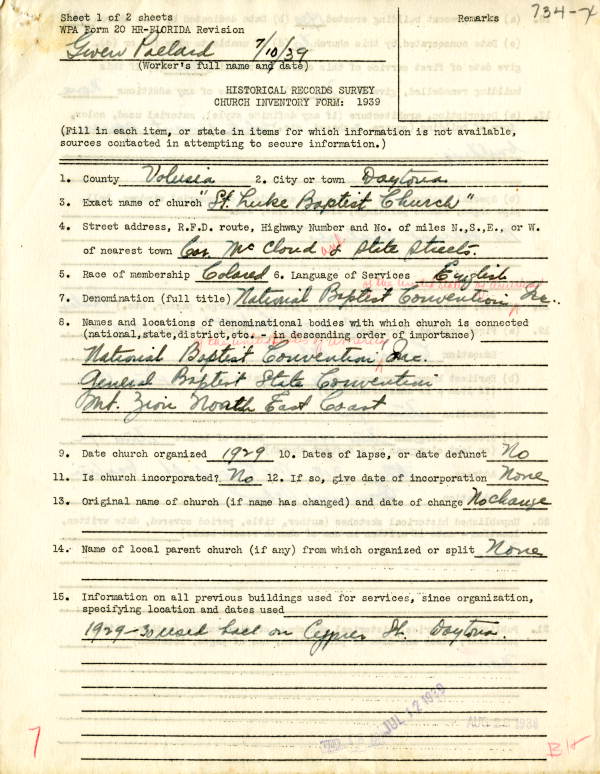 Sheet 1 of 2 sheets
WPA Form 20 HR-FLORIDA Revision
Remarks
734-X
Gwen Pollard 7/10/39
(Worker's full name and date)
HISTORICAL RECORDS SURVEY
CHURCH INVENTORY FORM: 1939
(Fill in each item, or state in items for which information is not available,
sources contacted in attempting to secure information.)
1. County Volusia 2. City or town Daytona
3. Exact name of church "St. Luke Baptist Church"
4. Street address, R.F.D. route, Highway Number and No. of miles N.,S.,E., or W.
of nearest town Cor. McCloud and & State Streets.
5. Race of membership Colored 6. Language of Services English
of the United States of America
7. Denomination (full title) National Baptist Convention, Inc..
8. Names and locations of denominational bodies with which church is connected
(national,state,district,etc. - in descending order of importance)
of the United States of America
National Baptist Convention, Inc.
General Baptist State Convention
Mt. Zion North East Coast
9. Date church organized 1929 10. Dates of lapse, or date defunct No
11. Is church incorporated? No 12. If so, give date of incorporation None
13. Original name of church (if name has changed) and date of change No change
14. Name of local parent church (if any) from which organized or split None
15. Information on all previous buildings used for services, since organization,
specifying location and dates used
1929-30 used hall on Cypress St. Daytona.
JUL 12 1939
AUG
7